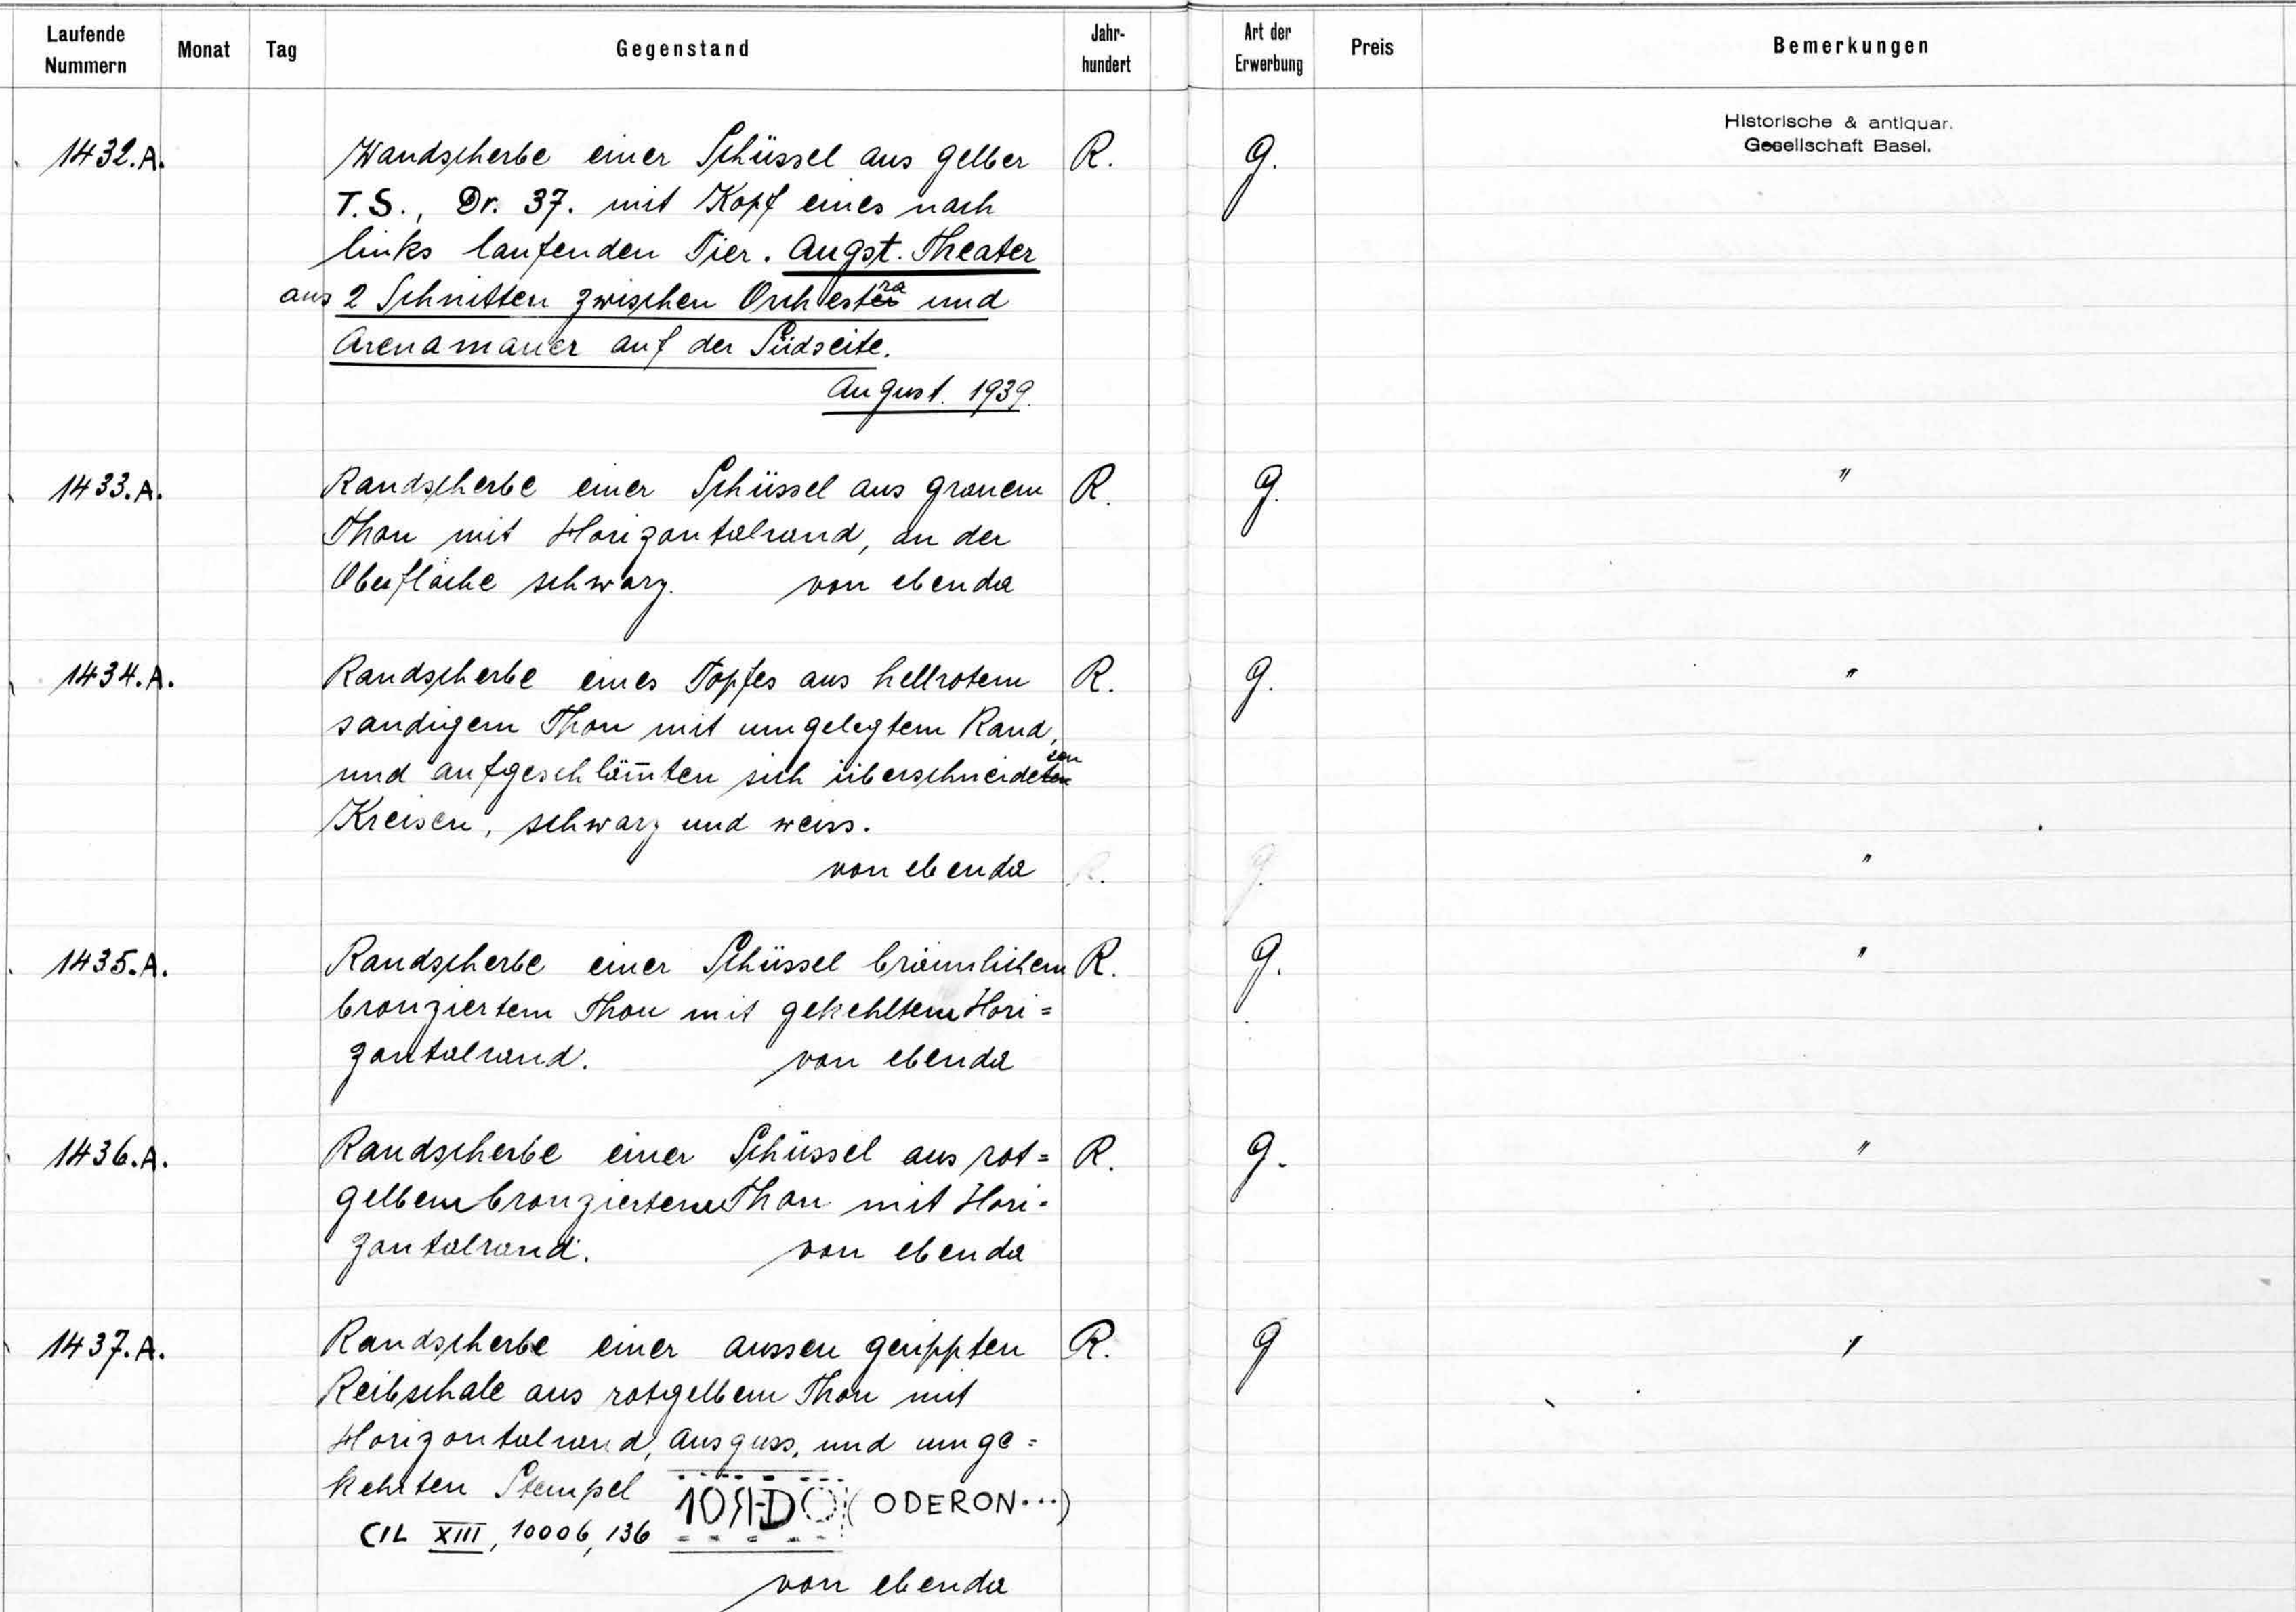 Laufende Nummern Monat Tag Gegenstand Jahr-hundert Art der Erwerbung Preis Bemerkungen
Historische & antiquar.
Gesellschaft Basel.
1432.A. Wandscherbe einer Schüssel aus gelber R. G.
T.S., Dr. 37. mit Kopf eines nach
links laufenden Tier. Augst. Theater
aus 2 Schnitten zwischen Orchestra und
Arenamauer auf der Südseite.
August. 1939.
1433.A. Randscherbe einer Schüssel aus grauem R. G. "
Thon mit Horizontalrand, an der
Oberfläche schwarz. von ebenda
1434.A. Randscherbe eines Topfes aus hellrotem R. G. "
sandigem Thon mit umgelegtem Rand,
und aufgeschläm̅ten sich überschneiden
Kreisen, schwarz und weiss.
von ebenda R. G. "
1435.A. Randscherbe einer Schüssel bräunlichem R. G. "
bronziertem Thon mit gekehltem Hori=
zontalrand. von ebenda
1436.A. Randscherbe einer Schüssel aus rot= R. G. "
gelbem bronziertem Thon mit Hori=
zontalrand. von ebenda
1437.A. Randscherbe einer aussen gerippten R. G "
Reibschale aus rotgelbem Thon mit
Horizontalrand, Ausguss, und umge=
kehrten Stempel (ODERON...)
CIL XIII, 10006, 136
von ebenda